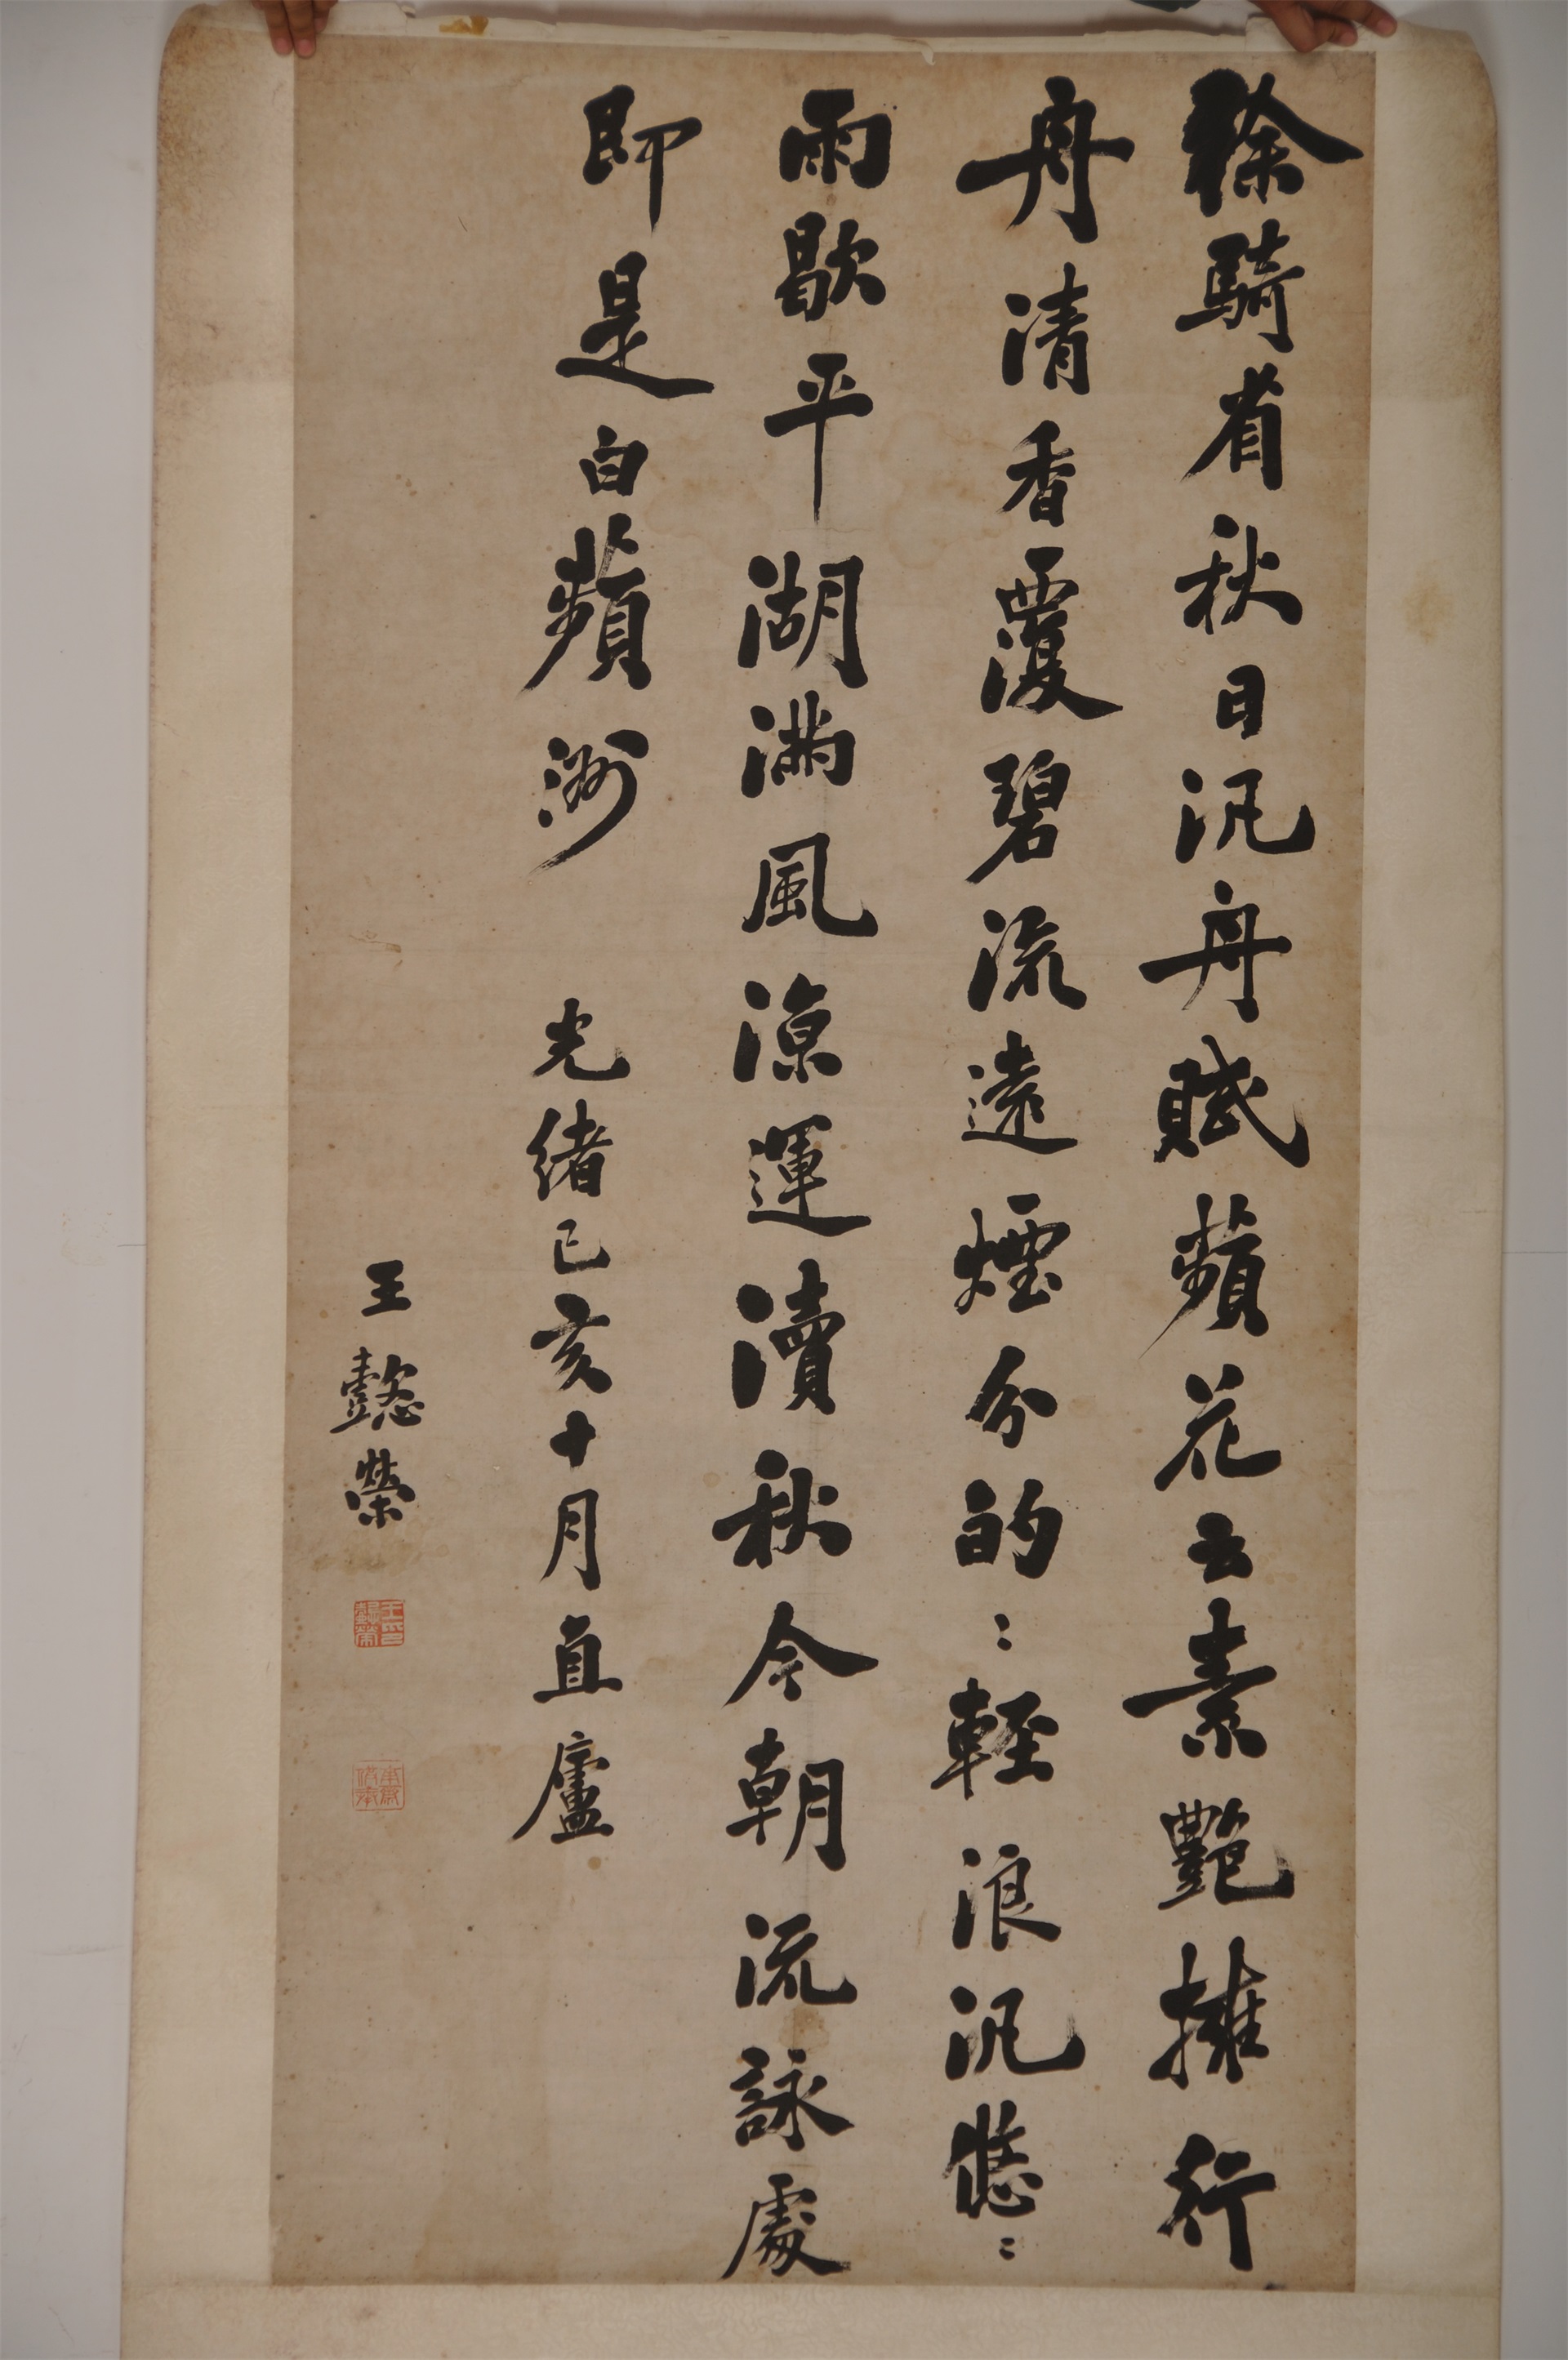 徐騎省秋日汎舟賦蘋花云素艷擁行
舟清香覆碧流遠煙分的〻輕浪汎悠〻
雨歇平湖滿風涼運瀆秋今朝流詠處
即是白蘋洲 光緒己亥十月直廬
王懿榮
王印懿榮
南齋供奉